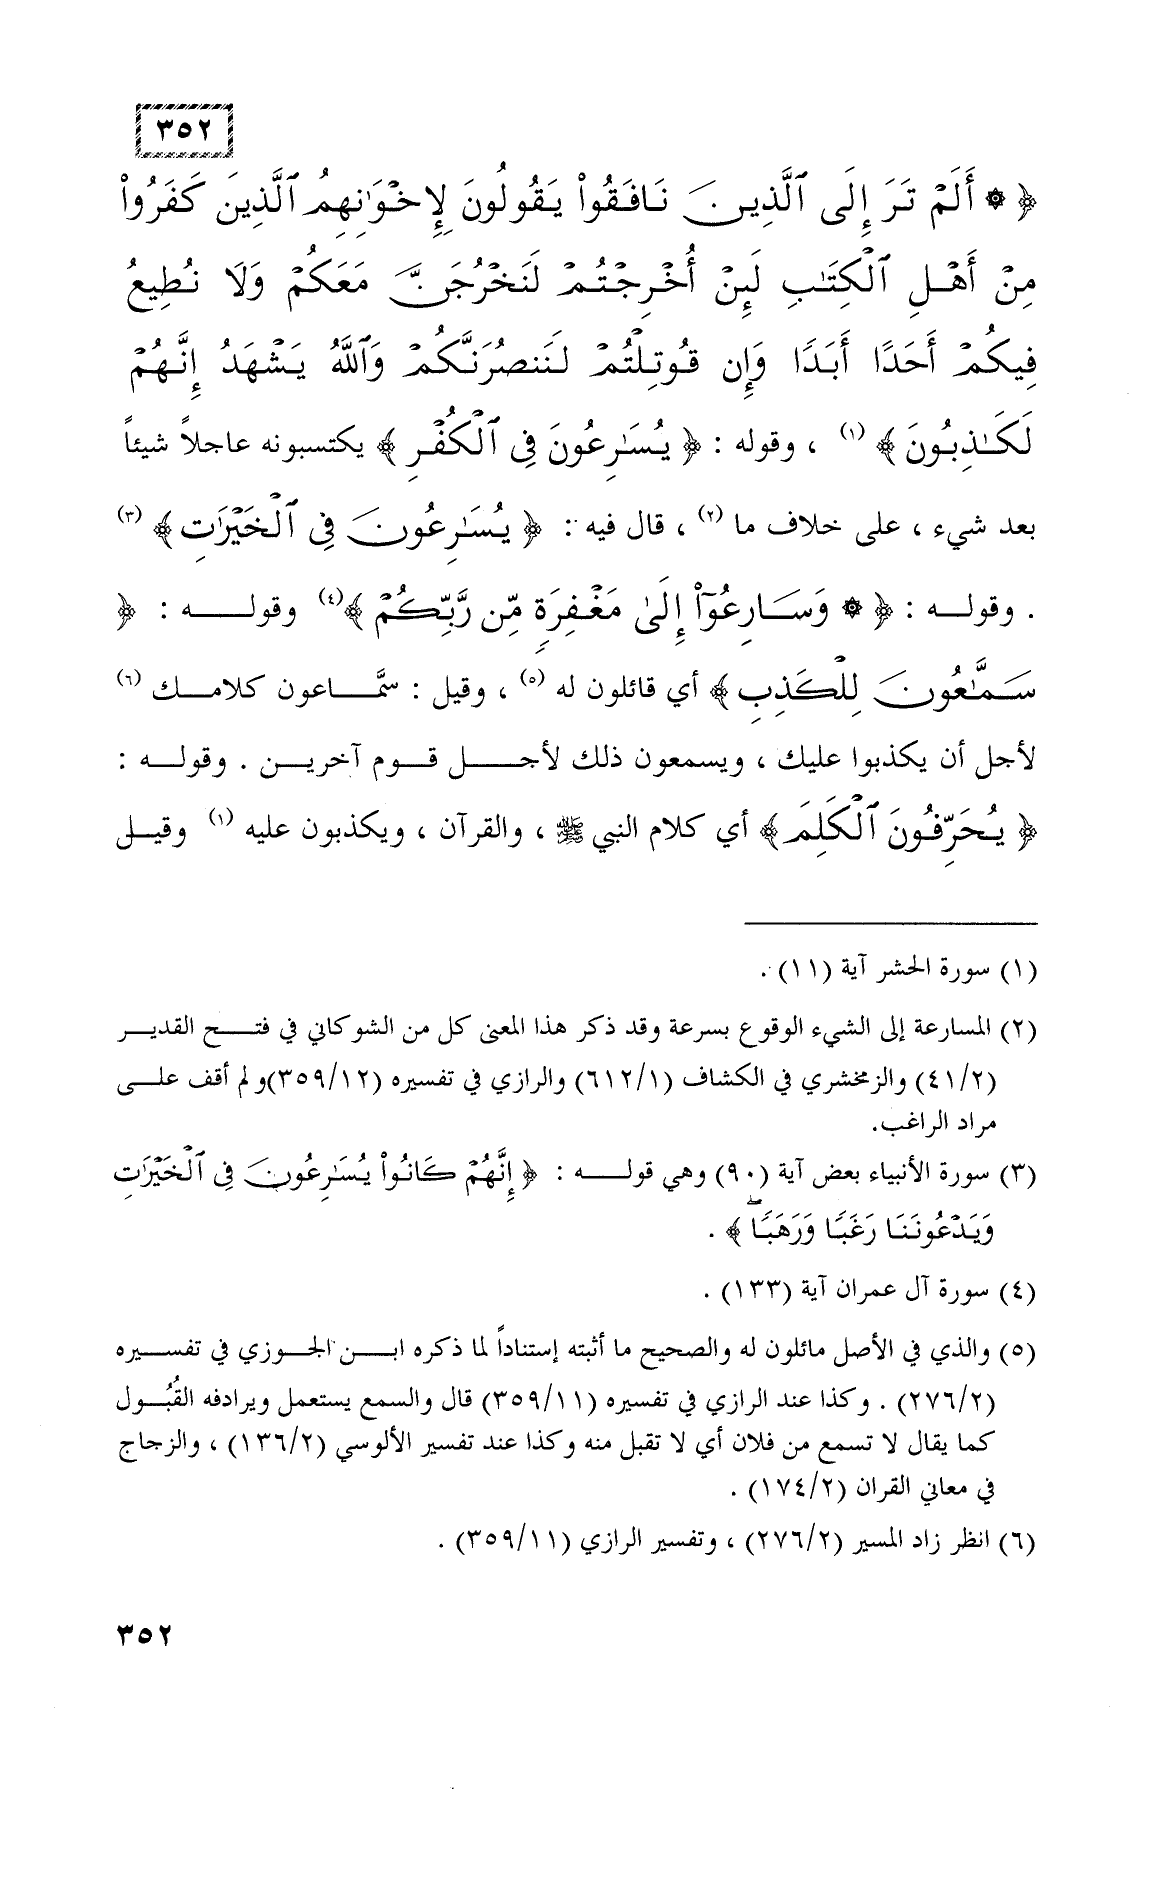 ٣٥٢
﴿ ۞ أَلَمْ تَرَ إِلَى ٱلَّذِينَ نَافَقُوا۟ يَقُولُونَ لِإِخْوَٰنِهِمُ ٱلَّذِينَ كَفَرُوا۟
مِنْ أَهْلِ ٱلْكِتَٰبِ لَئِنْ أُخْرِجْتُمْ لَنَخْرُجَنَّ مَعَكُمْ وَلَا نُطِيعُ
فِيكُمْ أَحَدًا أَبَدًا وَإِن قُوتِلْتُمْ لَنَنصُرَنَّكُمْ وَٱللَّهُ يَشْهَدُ إِنَّهُمْ
لَكَٰذِبُونَ ﴾ (١) ، وقوله : ﴿ يُسَٰرِعُونَ فِى ٱلْكُفْرِ ﴾ يكتسبونه عاجلاً شيئاً
بعد شيء ، على خلاف ما (٢) ، قال فيه : ﴿ يُسَٰرِعُونَ فِى ٱلْخَيْرَٰتِ ﴾ (٣)
. وقولـه : ﴿ ۞ وَسَارِعُوٓا۟ إِلَىٰ مَغْفِرَةٍ مِّن رَّبِّكُمْ ﴾(٤) وقولـــه : ﴿
سَمَّٰعُونَ لِلْكَذِبِ ﴾ أي قائلون له (٥) ، وقيل : سمَّـاعون كلامـك (٦)
لأجل أن يكذبوا عليك ، ويسمعون ذلك لأجـــل قـوم آخريـن . وقولـه :
﴿ يُحَرِّفُونَ ٱلْكَلِمَ ﴾ أي كلام النبي ﷺ ، والقرآن ، ويكذبون عليه (١) وقيـل
(١) سورة الحشر آية (١١) .
(٢) المسارعة إلى الشيء الوقوع بسرعة وقد ذكر هذا المعنى كل من الشوكاني في فتـح القديـر
(٤١/٢) والزمخشري في الكشاف (٦١٢/١) والرازي في تفسيره (٣٥٩/١٢)و لم أقف علـى
مراد الراغب.
(٣) سورة الأنبياء بعض آية (٩٠) وهي قولـــه : ﴿ إِنَّهُمْ كَانُوا۟ يُسَٰرِعُونَ فِى ٱلْخَيْرَٰتِ
وَيَدْعُونَنَا رَغَبًا وَرَهَبًا ۖ ﴾ .
(٤) سورة آل عمران آية (١٣٣) .
(٥) والذي في الأصل مائلون له والصحيح ما أثبته إستناداً لما ذكره ابـن الجـوزي في تفسـيره
(٢٧٦/٢) . وكذا عند الرازي في تفسيره (٣٥٩/١١) قال والسمع يستعمل ويرادفه القُبُـول
كما يقال لا تسمع من فلان أي لا تقبل منه وكذا عند تفسير الألوسي (١٣٦/٢) ، والزجاج
في معاني القران (١٧٤/٢) .
(٦) انظر زاد المسير (٢٧٦/٢) ، وتفسير الرازي (٣٥٩/١١) .
٣٥٢